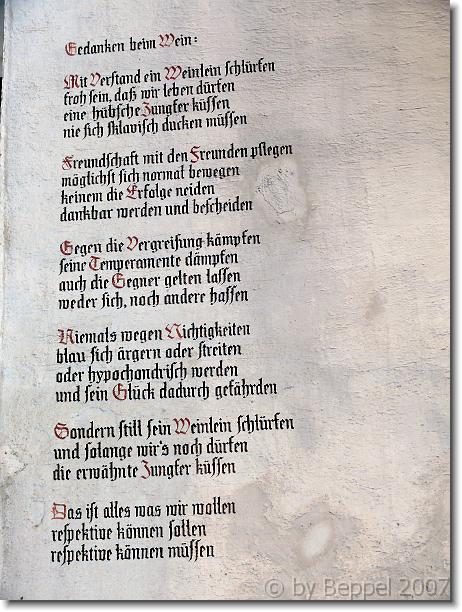 Gedanken beim Wein:
Mit Verstand ein Weinlein schlürfen
froh sein, daß wir leben dürfen
eine hübsche Jungfer küssen
nie sich sklavisch ducken müssen
Freundschaft mit den Freunden pflegen
möglichst sich normal bewegen
keinem die Erfolge neiden
dankbar werden und bescheiden
Gegen die Vergreisung kämpfen
seine Temperamente dämpfen
auch die Gegner gelten lassen
weder sich, noch andere hassen
Niemals wegen Nichtigkeiten
blau sich ärgern oder streiten
oder hypochondrisch werden
und sein Glück dadurch gefährden
Sondern still sein Weinlein schlürfen
und solange wir's noch dürfen
die erwähnte Jungfer küssen
Das ist alles was wir wollen
respektive können sollen
respektive können müssen
© by Beppel 2007